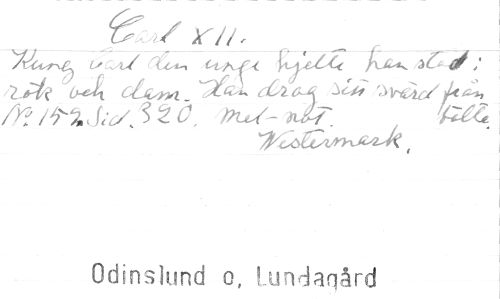 Carl XII.
Kung Carl den unge hjelte han stod i
rök och dam. Han drog sitt svärd från
No. 152. Sid. 320. Met-not. bälte.
Westermark.
Odinslund o, Lundagård